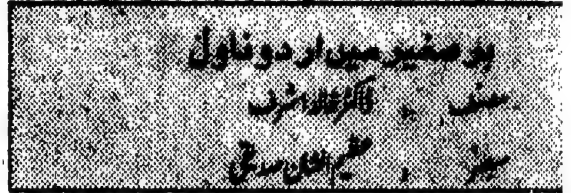 برصغیر میں اردو ناول
مصنف : ڈاکٹر خالد اشرف
مبصر : عظیم الشان صدیقی